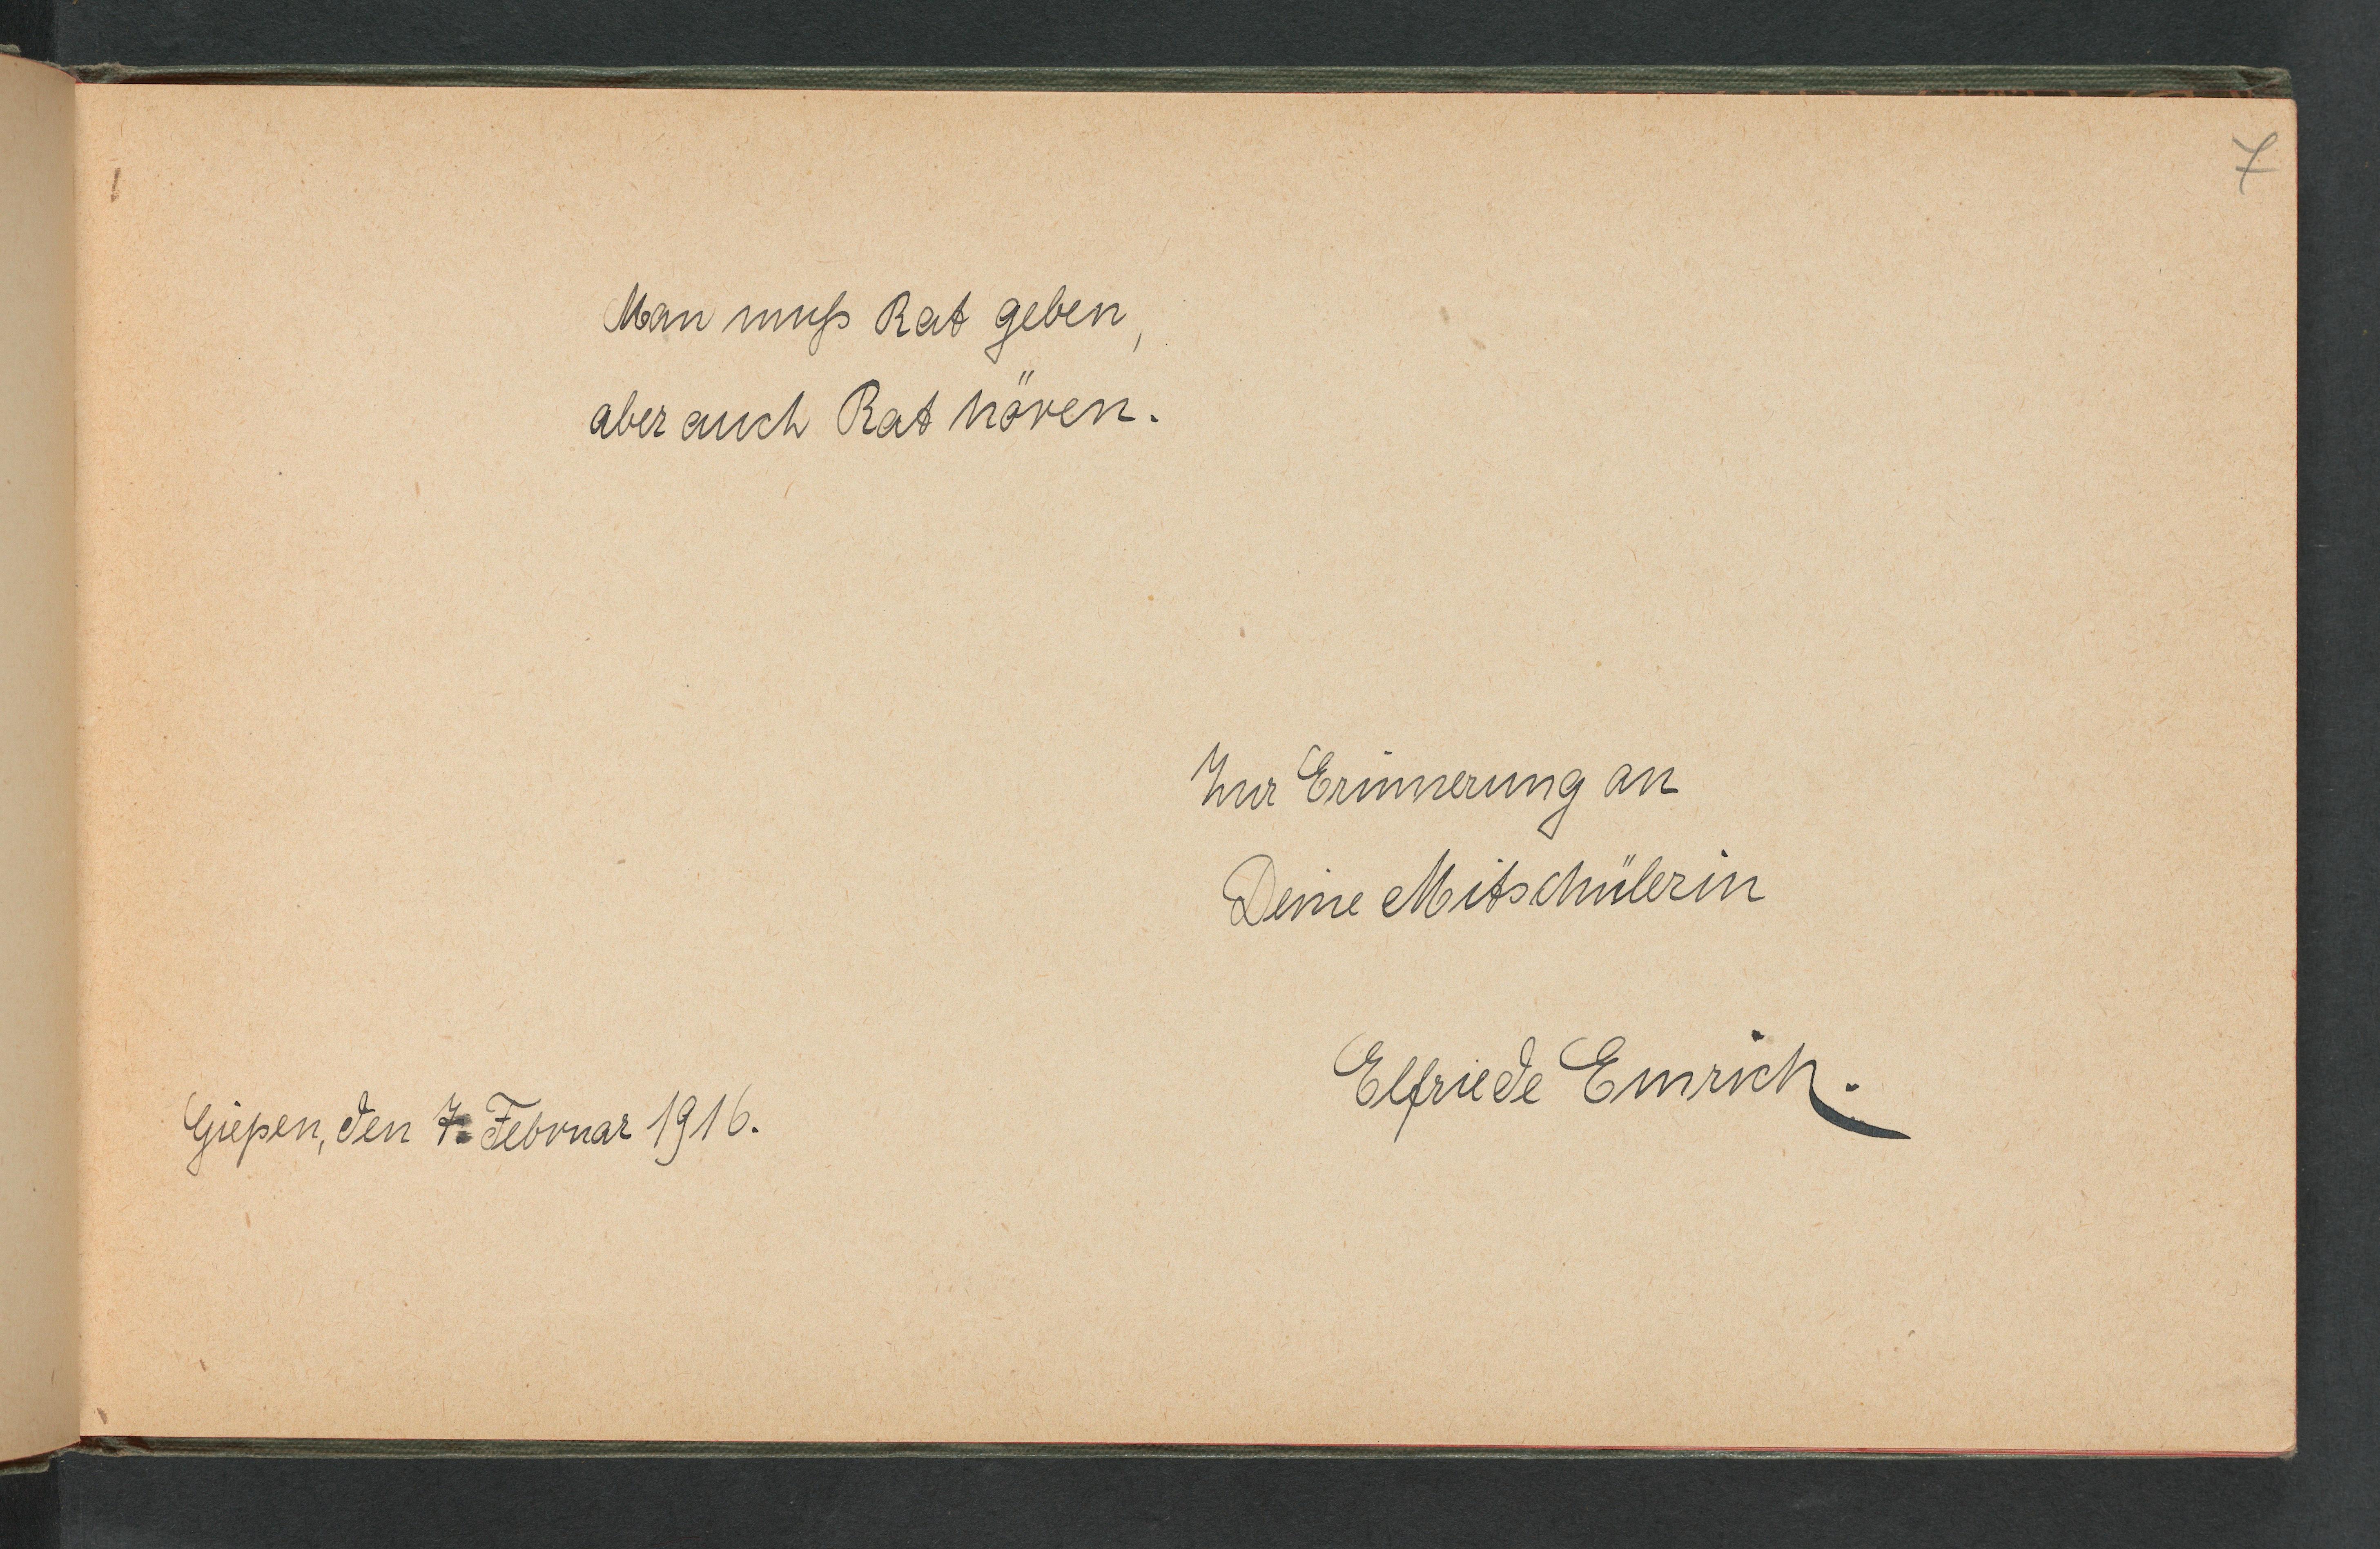 7
Man muß Rat geben,
aber auch Rat hören.
Zur Erinnerung an
Deine Mitschülerin
Elfriede Emrich.
Gießen, den 7. Februar 1916.